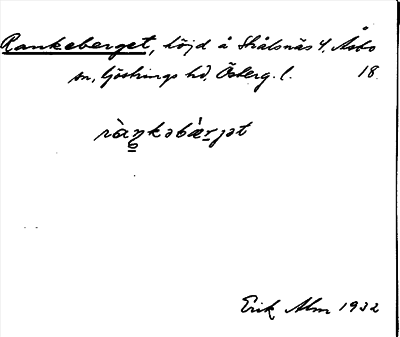 Rankeberget, höjd å Skålsnäs 4, Åsbo
sn, Göstrings hd, Österg. l. 18
ràŋkəbæ̀rjət
Erik Alm 1932